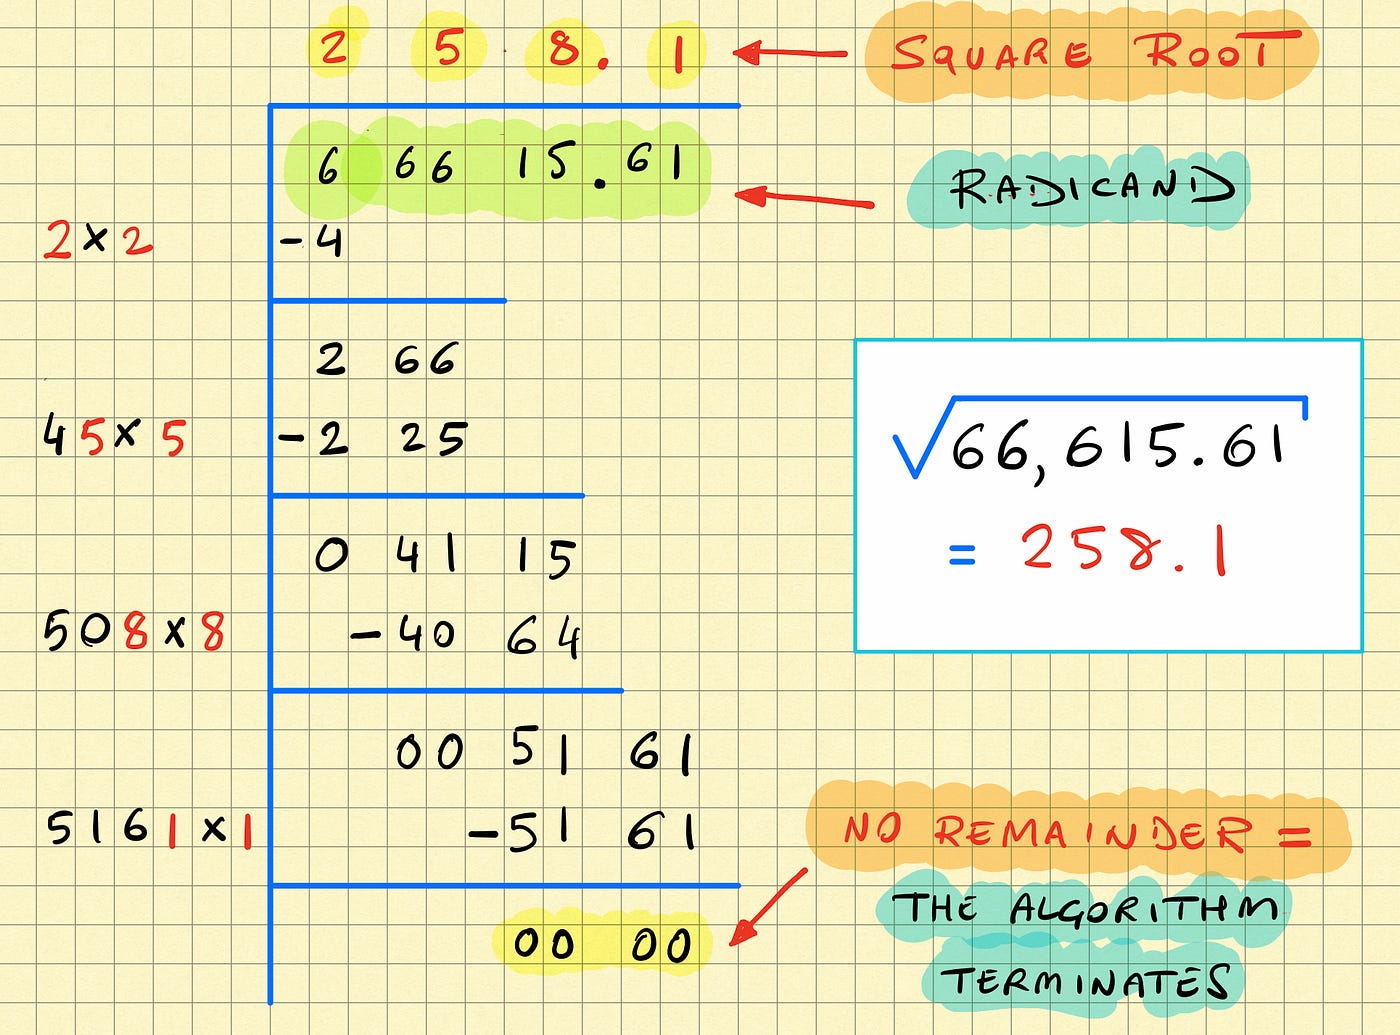 2 5 8.1 ← SQUARE ROOT
6 66 15.61 ← RADICAND
2×2 -4
2 66
45×5 -2 25
√66,615.61
= 258.1
0 41 15
508×8 -40 64
00 51 61
5161×1 -51 61
NO REMAINDER =
THE ALGORITHM
00 00
TERMINATES